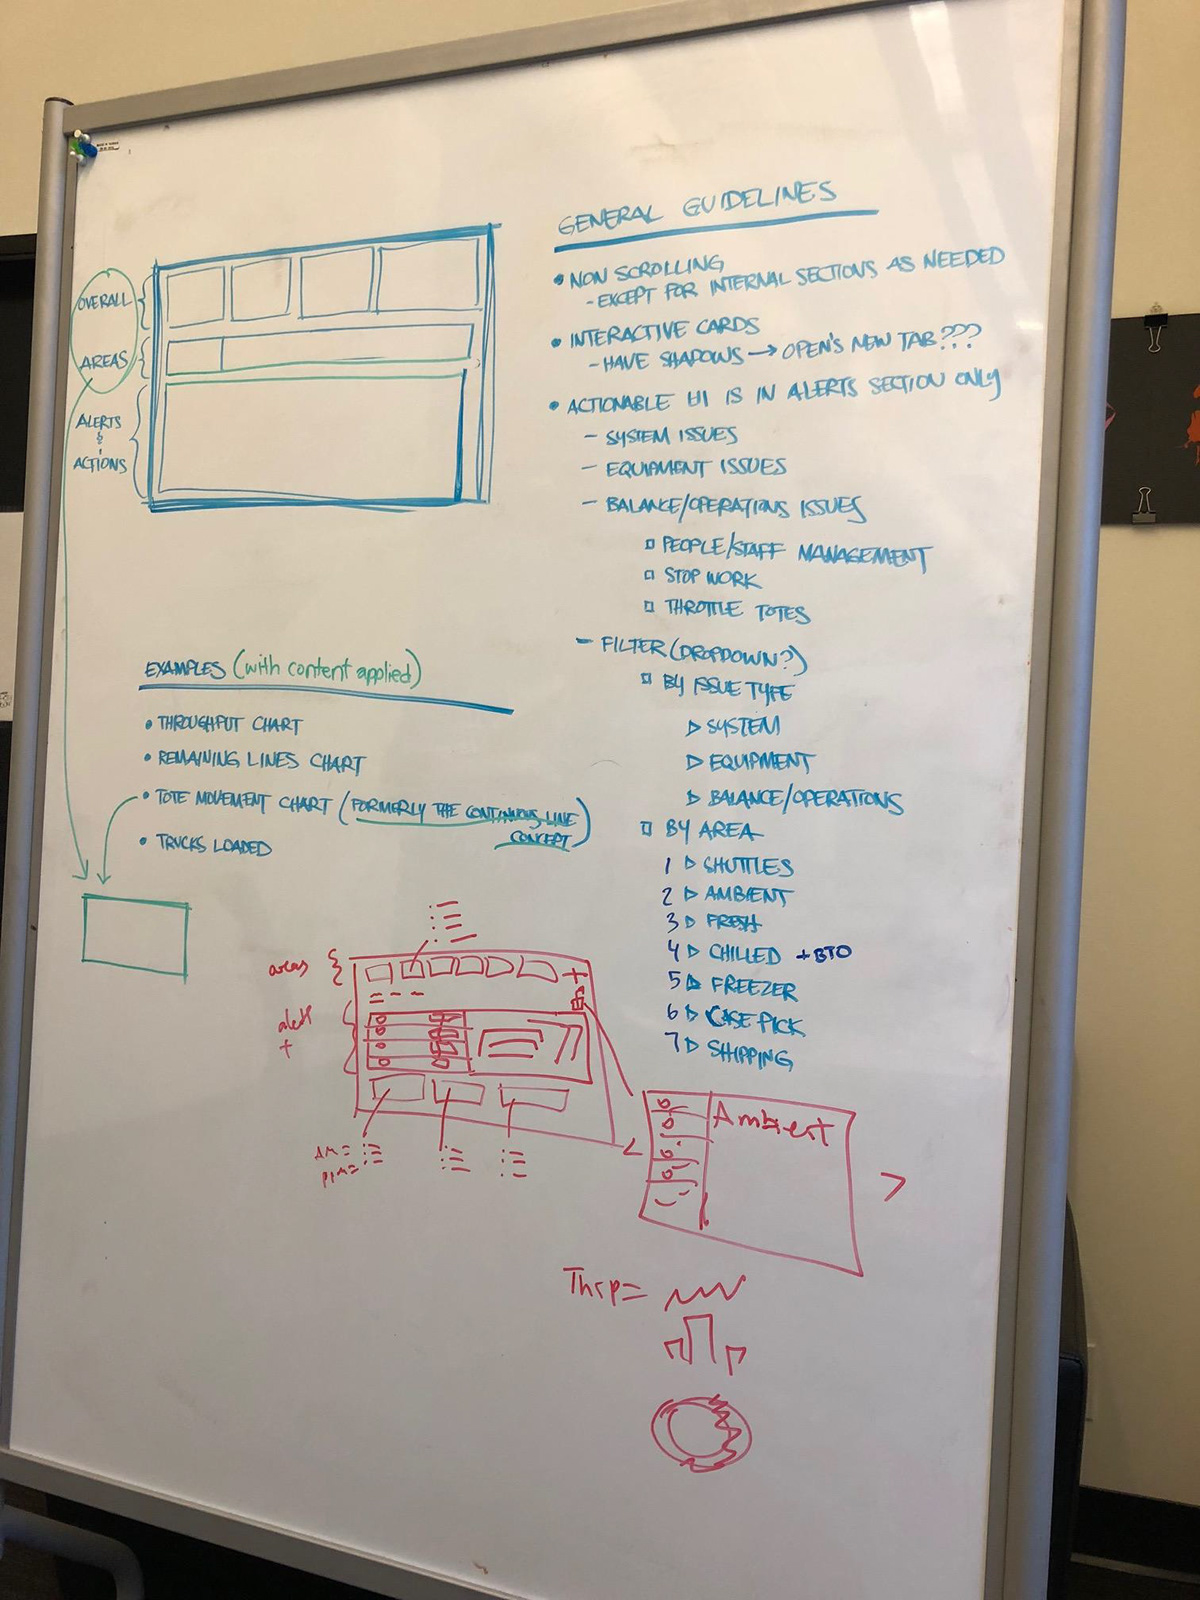 GENERAL GUIDELINES
• NON SCROLLING
- EXCEPT FOR INTERNAL SECTIONS AS NEEDED
• INTERACTIVE CARDS
- HAVE SHADOWS → OPEN'S NEW TAB???
• ACTIONABLE UI IS IN ALERTS SECTION ONLY
- SYSTEM ISSUES
- EQUIPMENT ISSUES
- BALANCE/OPERATIONS ISSUES
□ PEOPLE/STAFF MANAGEMENT
□ STOP WORK
□ THROTTLE TOTES
- FILTER (DROPDOWN?)
□ BY ISSUE TYPE
▷ SYSTEM
▷ EQUIPMENT
▷ BALANCE/OPERATIONS
□ BY AREA
1 ▷ SHUTTLES
2 ▷ AMBIENT
3 ▷ FRESH
4 ▷ CHILLED + BTO
5 ▷ FREEZER
6 ▷ CASE PICK
7 ▷ SHIPPING
OVERALL
AREAS
ALERTS
&
ACTIONS
EXAMPLES (with content applied)
• THROUGHPUT CHART
• REMAINING LINES CHART
• TOTE MOVEMENT CHART (FORMERLY THE CONTINUOUS LINE
CONCEPT)
• TRUCKS LOADED
areas
alerts
+
AM =
PPM =
Ambient
Thrp =